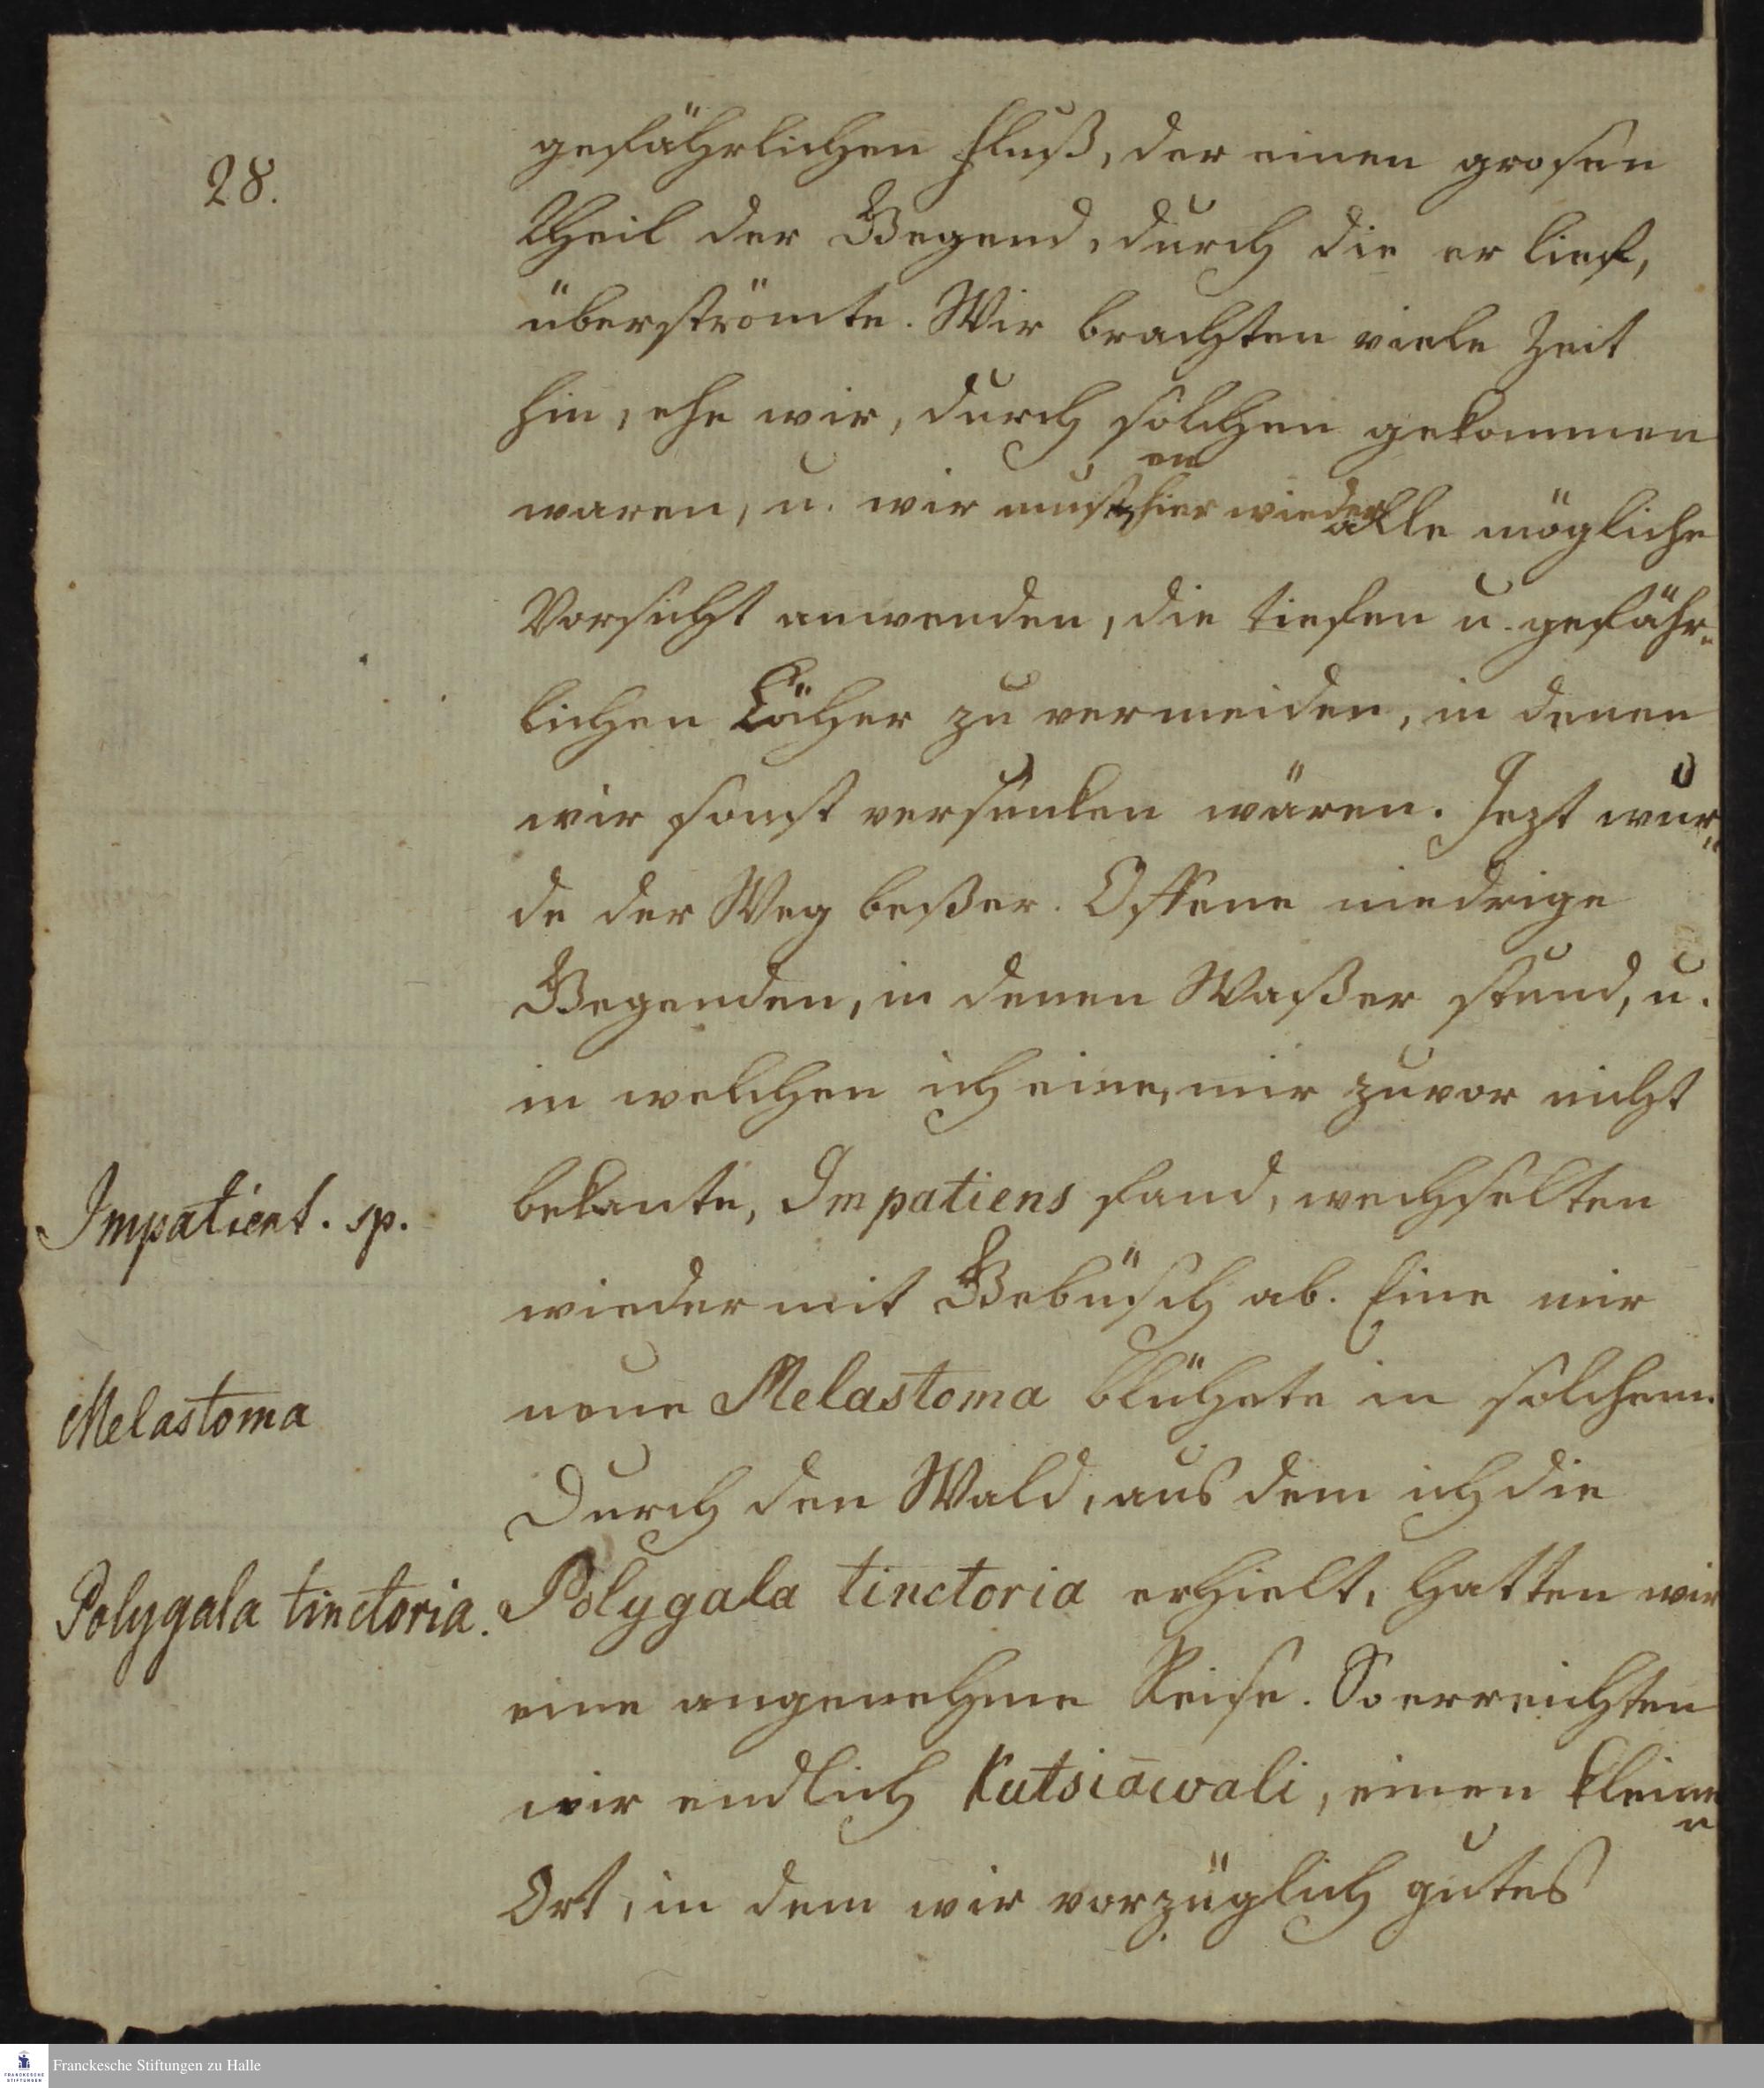 28.
gefährlichen Fluß, der einen grosen
Theil der Gegend, durch die er lief,
überströmte. Wir brachten viele Zeit
hin, ehe wir, durch solchen gekommen
waren, u. wir musten hier wieder alle mögliche
Vorsicht anwenden, die tiefen u. gefähr„
lichen Löcher zu vermeiden, in denen
wir sonst versunken wären. Jezt wur„
de der Weg beßer. Offene niedrige
Gegenden, in denen Waßer stund, u.
in welchen ich eine, mir zuvor nicht
Impatient. sp.
bekante, Impatiens fand, wechselten
wieder mit Gebüsch ab. Eine mir
Melastoma
neue Melastoma blühete in solchem.
Durch den Wald, aus dem ich die
Polygala tinctoria.
Polygala tinctoria erhielt, hatten wir
eine angenehme Reise. So erreichten
wir endlich Kutsiāwali, einen kleinen
Ort, in dem wir vorzüglich gutes
Franckesche Stiftungen zu Halle
FRANCKESCHE
STIFTUNGEN